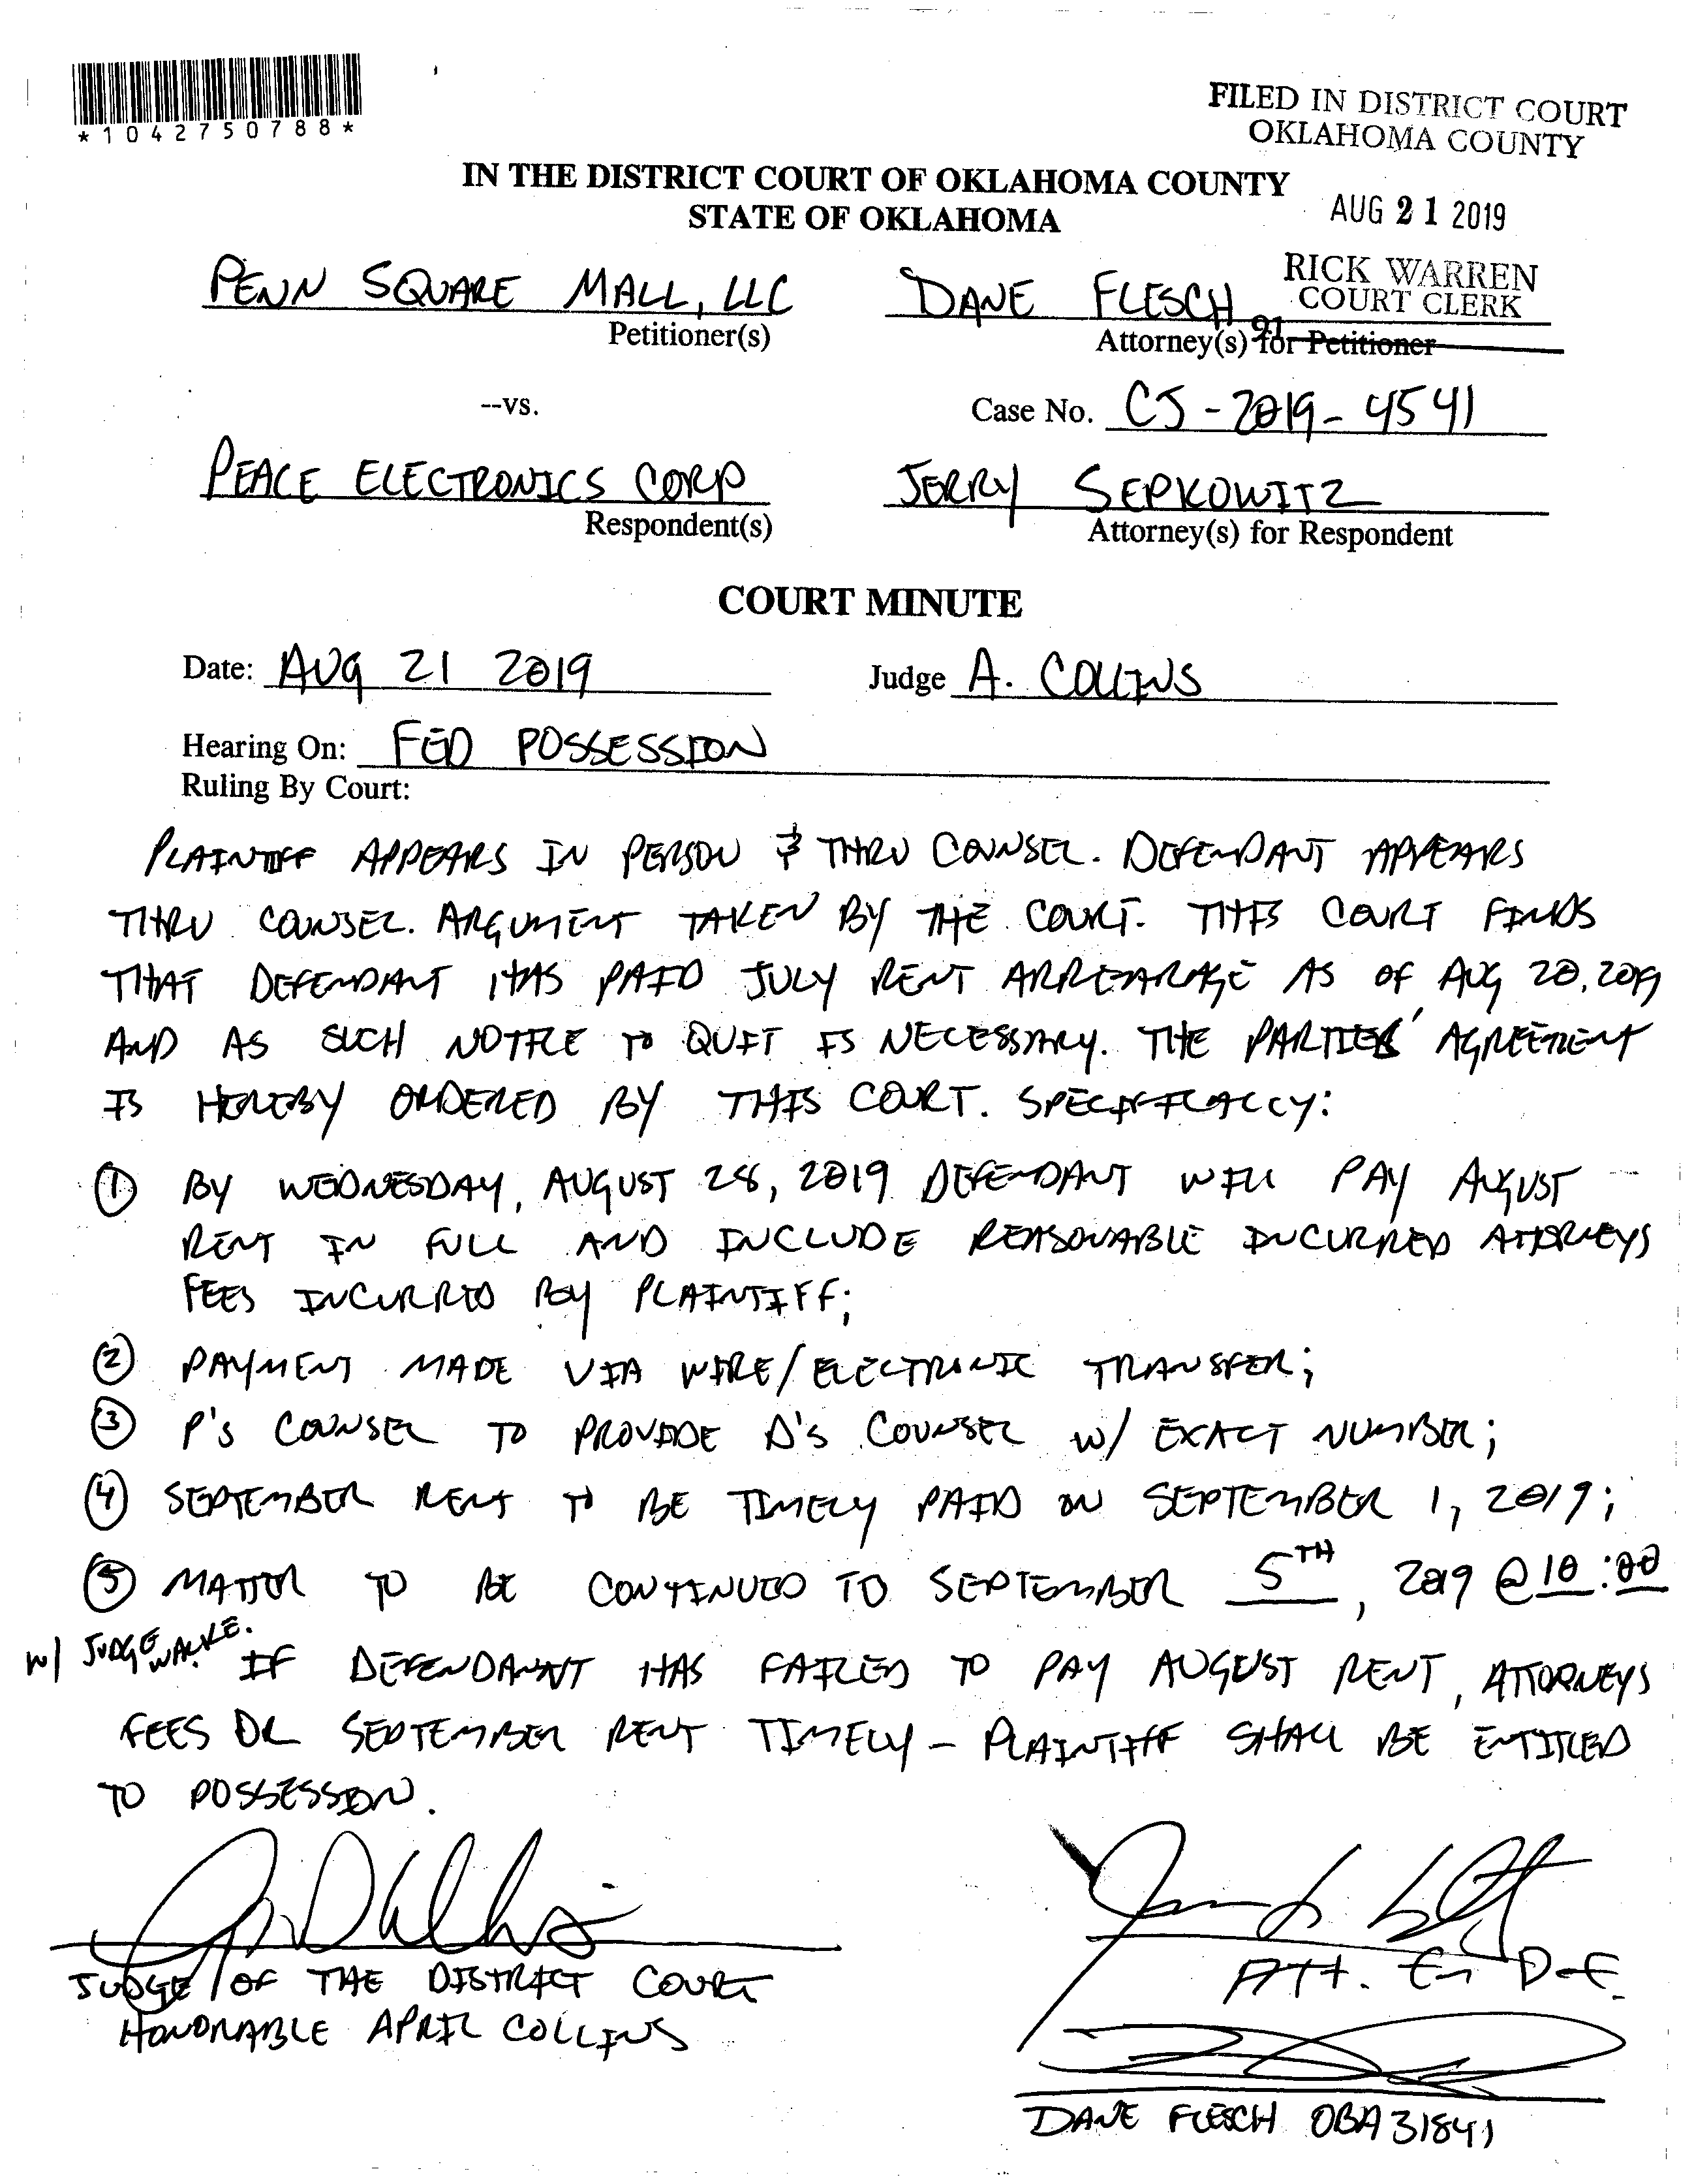 *1042750788*
FILED IN DISTRICT COURT
OKLAHOMA COUNTY
IN THE DISTRICT COURT OF OKLAHOMA COUNTY
STATE OF OKLAHOMA
AUG 21 2019
RICK WARREN
COURT CLERK
91
PENN SQUARE MALL, LLC
Petitioner(s)
DANE FLESCH
Attorney(s) for Petitioner
--vs.
Case No. CJ-2019-4541
PEACE ELECTRONICS CORP
Respondent(s)
JERRY SEPKOWITZ
Attorney(s) for Respondent
COURT MINUTE
Date: AUG 21 2019 Judge A. COLLINS
Hearing On: FED POSSESSION
Ruling By Court:
PLAINTIFF APPEARS IN PERSON & THRU COUNSEL. DEFENDANT APPEARS
THRU COUNSEL. ARGUMENT TAKEN BY THE COURT. THIS COURT FINDS
THAT DEFENDANT HAS PAID JULY RENT ARREARAGE AS OF AUG 20, 2019
AND AS SUCH NOTICE TO QUIT IS NECESSARY. THE PARTIES' AGREEMENT
IS HEREBY ORDERED BY THIS COURT. SPECIFICALLY:
① BY WEDNESDAY, AUGUST 28, 2019 DEFENDANT WILL PAY AUGUST
RENT IN FULL AND INCLUDE REASONABLE INCURRED ATTORNEYS
FEES INCURRED BY PLAINTIFF;
② PAYMENT MADE VIA WIRE/ELECTRONIC TRANSFER;
③ P'S COUNSEL TO PROVIDE Δ'S COUNSEL W/ EXACT NUMBER;
④ SEPTEMBER RENT TO BE TIMELY PAID ON SEPTEMBER 1, 2019;
⑤ MATTER TO BE CONTINUED TO SEPTEMBER 5TH, 2019 @ 10:00
W/ JUDGE WALKE. IF DEFENDANT HAS FAILED TO PAY AUGUST RENT, ATTORNEYS
FEES OR SEPTEMBER RENT TIMELY - PLAINTIFF SHALL BE ENTITLED
TO POSSESSION.
JUDGE OF THE DISTRICT COURT
HONORABLE APRIL COLLINS
Att. for Def.
DANE FLESCH OBA 31841